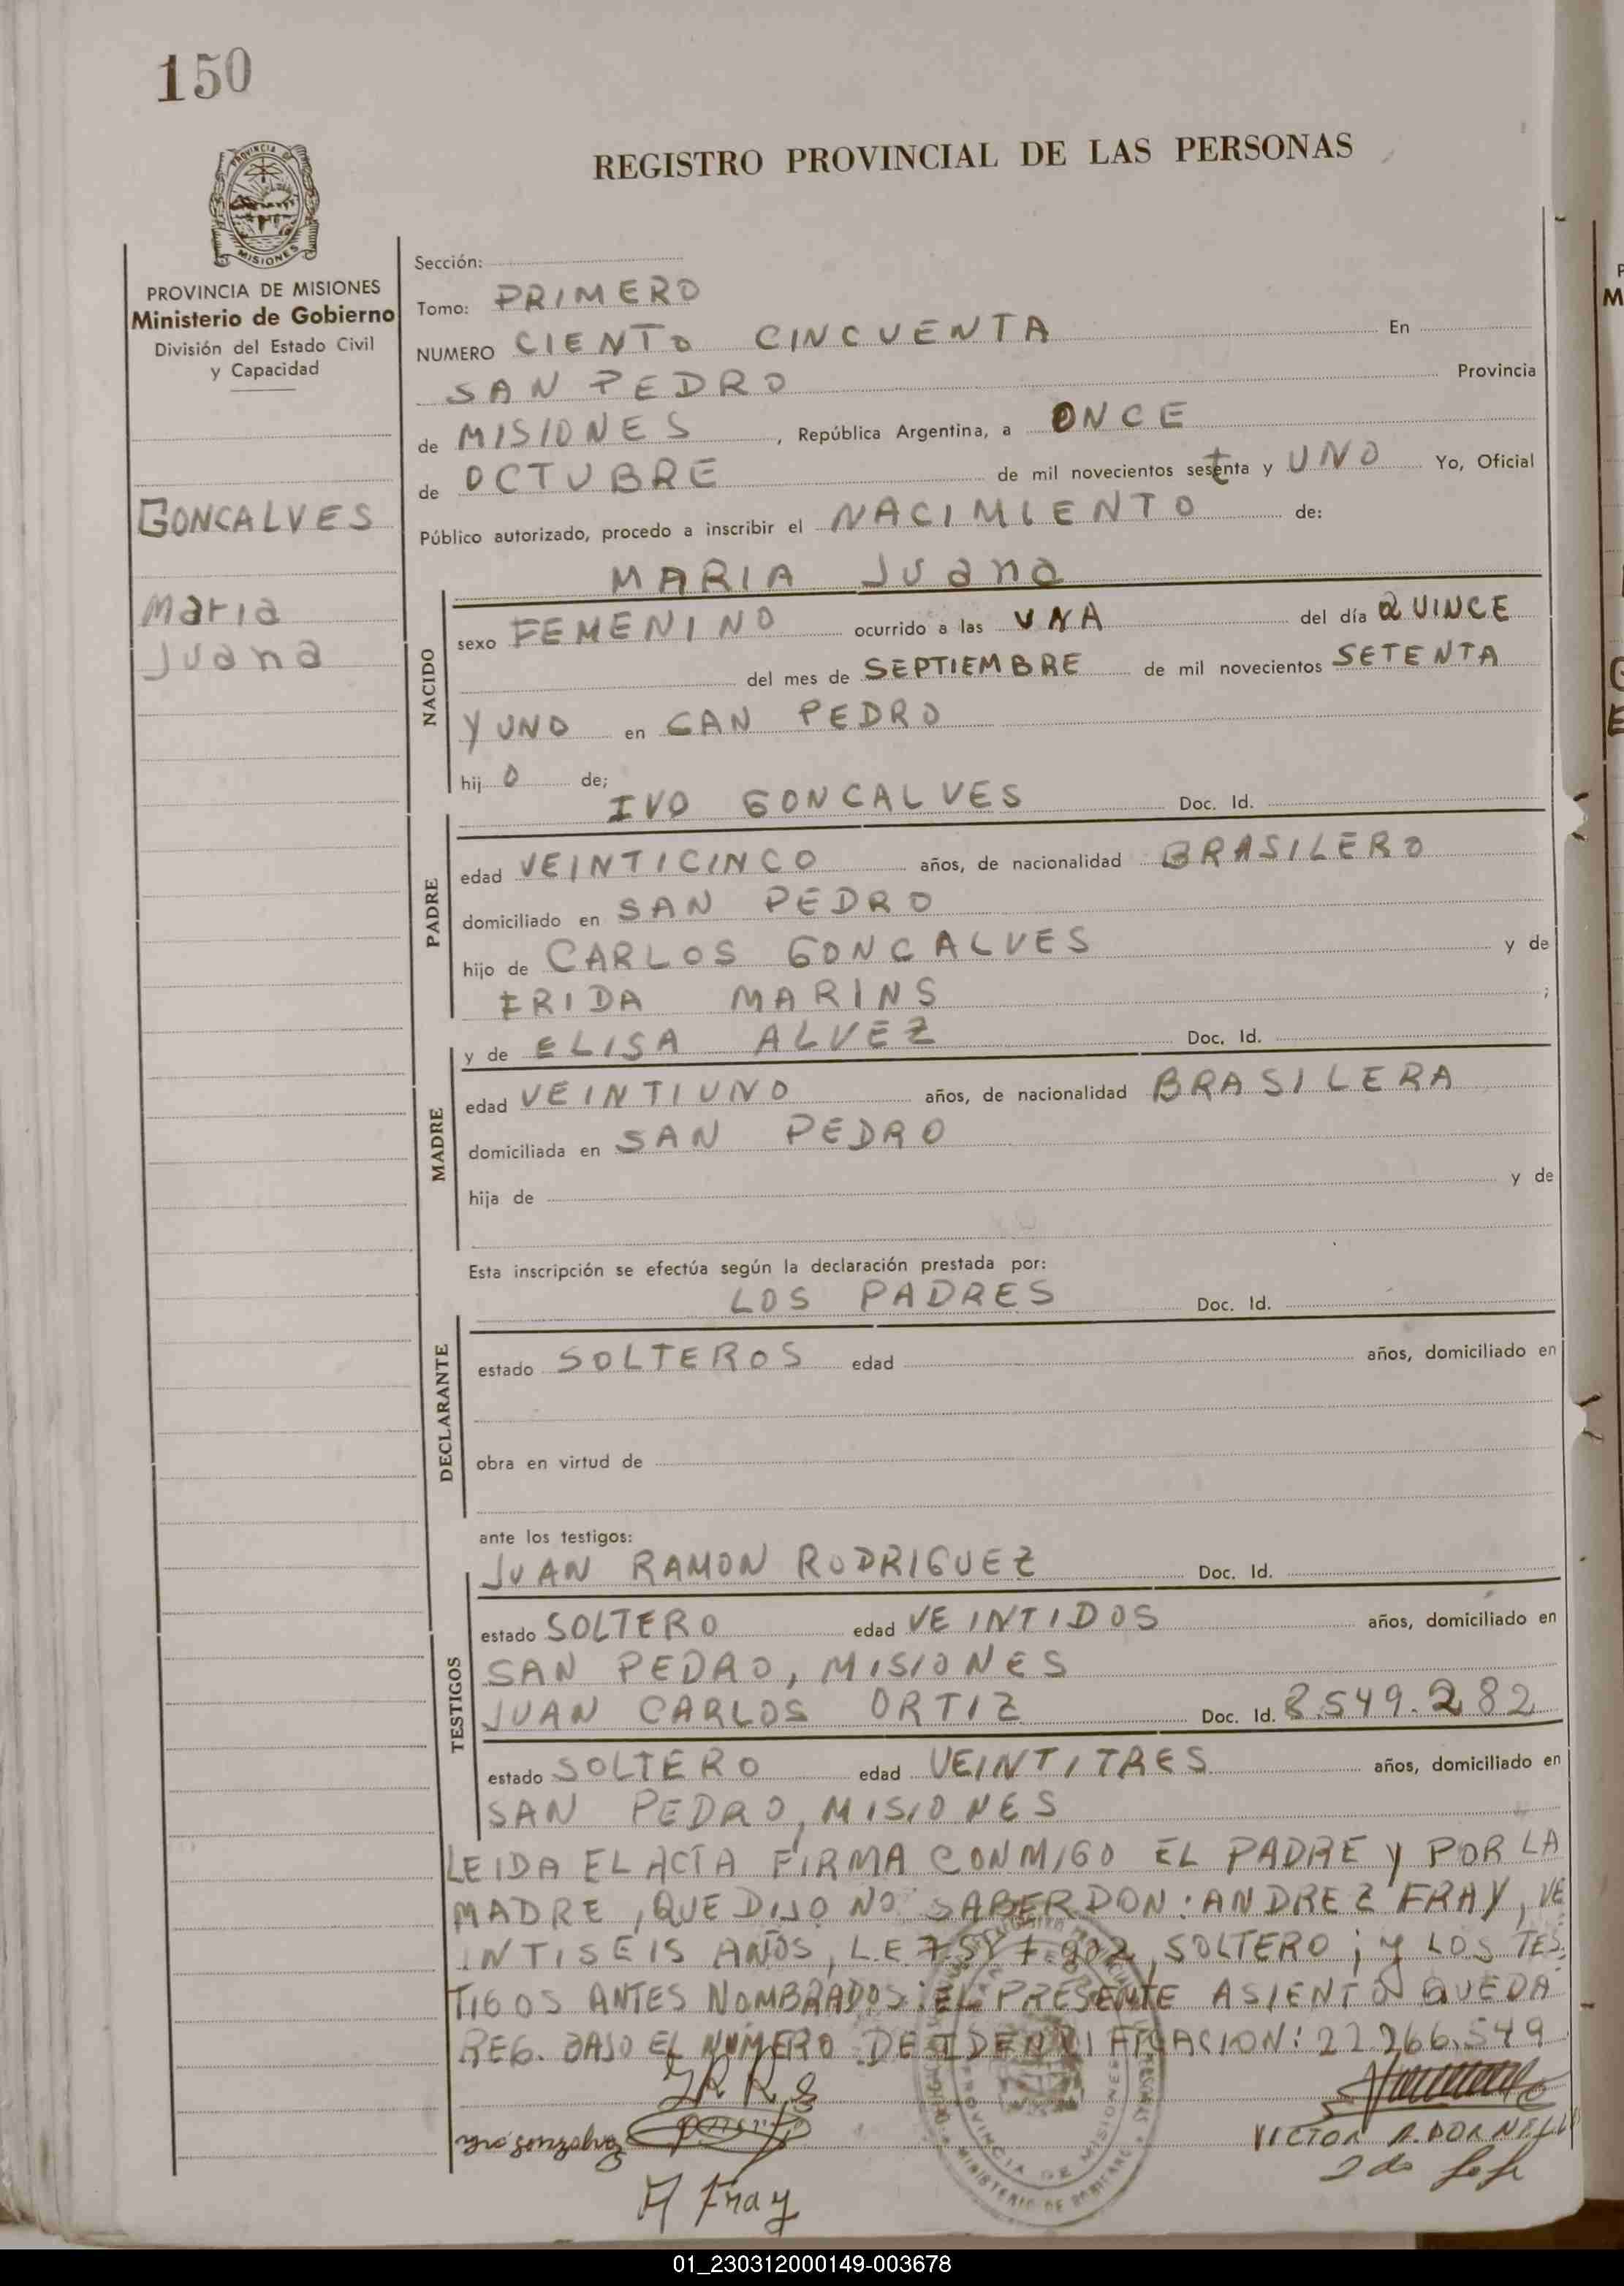 150
REGISTRO PROVINCIAL DE LAS PERSONAS
PROVINCIA DE
MISIONES
PROVINCIA DE MISIONES
Ministerio de Gobierno
División del Estado Civil
y Capacidad
GONCALVES
Maria
Juana
Sección:
Tomo: PRIMERO
NUMERO CIENTO CINCUENTA En
SAN PEDRO Provincia
de MISIONES, República Argentina, a ONCE
de OCTUBRE de mil novecientos setenta y UNO Yo, Oficial
Público autorizado, procedo a inscribir el NACIMIENTO de:
MARIA Juana
NACIDO
sexo FEMENINO ocurrido a las UNA del día QUINCE
del mes de SEPTIEMBRE de mil novecientos SETENTA
Y UNO en SAN PEDRO
hij o de;
IVO GONCALVES Doc. Id.
PADRE
edad VEINTICINCO años, de nacionalidad BRASILERO
domiciliado en SAN PEDRO
hijo de CARLOS GONCALVES y de
MARINS ;
y de ELISA ALVEZ Doc. Id.
MADRE
edad VEINTIUNO años, de nacionalidad BRASILERA
domiciliada en SAN PEDRO
hija de y de
Esta inscripción se efectúa según la declaración prestada por:
LOS PADRES Doc. Id.
DECLARANTE
estado SOLTEROS edad años, domiciliado en
obra en virtud de
ante los testigos:
JUAN RAMON RODRIGUEZ Doc. Id.
TESTIGOS
estado SOLTERO edad VEINTIDOS años, domiciliado en
SAN PEDRO, MISIONES
JUAN CARLOS ORTIZ Doc. Id. 8.549.282
estado SOLTERO edad VEINTITRES años, domiciliado en
SAN PEDRO, MISIONES
LEIDA EL ACTA FIRMA CONMIGO EL PADRE Y POR LA
MADRE, QUE DIJO NO SABER DON: ANDREZ FRAY, VE
INTISEIS AÑOS, L.E. SOLTERO; Y LOS TES
TIGOS ANTES NOMBRADOS: EL PRESENTE ASIENTO QUEDA
REG. BAJO EL NUMERO DE IDENTIFICACION: 22.266.549
PROVINCIA DE MISIONES
MINISTERIO DE GOBIERNO
A Fray
VICTOR
2do Jefe
01_230312000149-003678